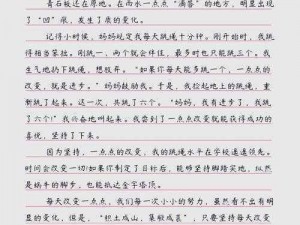 青石板还在原地。在雨水一点点“滴答”的地方，明显出
现了“凹”痕，发生了质的变化。
记得小时候，妈妈规定我每天跳绳十分钟。刚开始时，我跳
得踉踉跄跄。刚跳一、两个就会绊住，最多时也只能跳三个。我
生气地扔下跳绳，想放弃。“如果你每天能多跳一个，一点点改
变，就是进步。”妈妈鼓励我。于是，我捡起地上的跳绳，重
新跳了起来。这一次，共跳了六个。“妈妈！我进步了！我跳
了六个！”我兴奋地叫起来。我尝到了一点点改变就能获得成功
的喜悦，坚持了下来。
因为坚持，一点点的改变，我的跳绳水平在学校遥遥领先。
时间会改变一切！如果你制定了目标后，能够坚持脚踏实地，以
蜗牛的脚步，也能抵达金字塔顶。
每天改变一点点，我们每一次小小的努力，虽然看不出有明
显的变化。但是，“积土成山，集腋成裘”，只要坚持每天改变